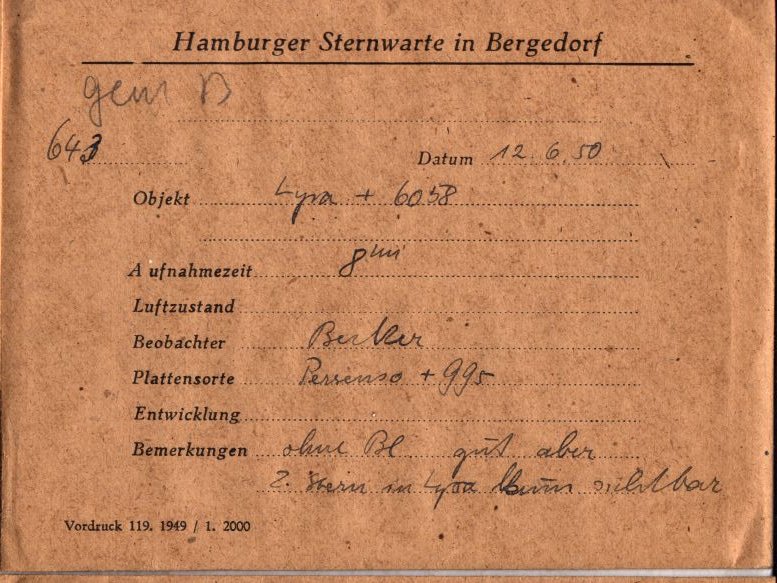 Hamburger Sternwarte in Bergedorf
gem B
643
Datum 12. 6. 50
Objekt Lyra + 6058
Aufnahmezeit 8 min
Luftzustand
Beobachter Becker
Plattensorte Persenso + 995
Entwicklung
Bemerkungen ohne Bl. gut aber
2. Stern in Lyra kaum sichtbar
Vordruck 119. 1949 / 1. 2000